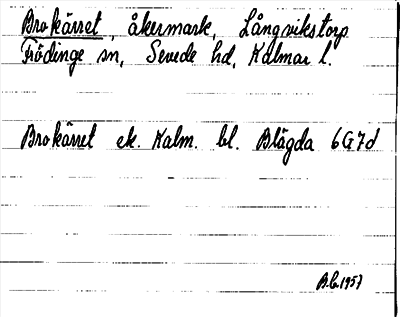 Brokärret, åkermark, Långvikstorp
Frödinge sn, Sevede hd, Kalmar l.
Brokärret ek. Kalm. bl. Blägda 6G7d
B.G.1957